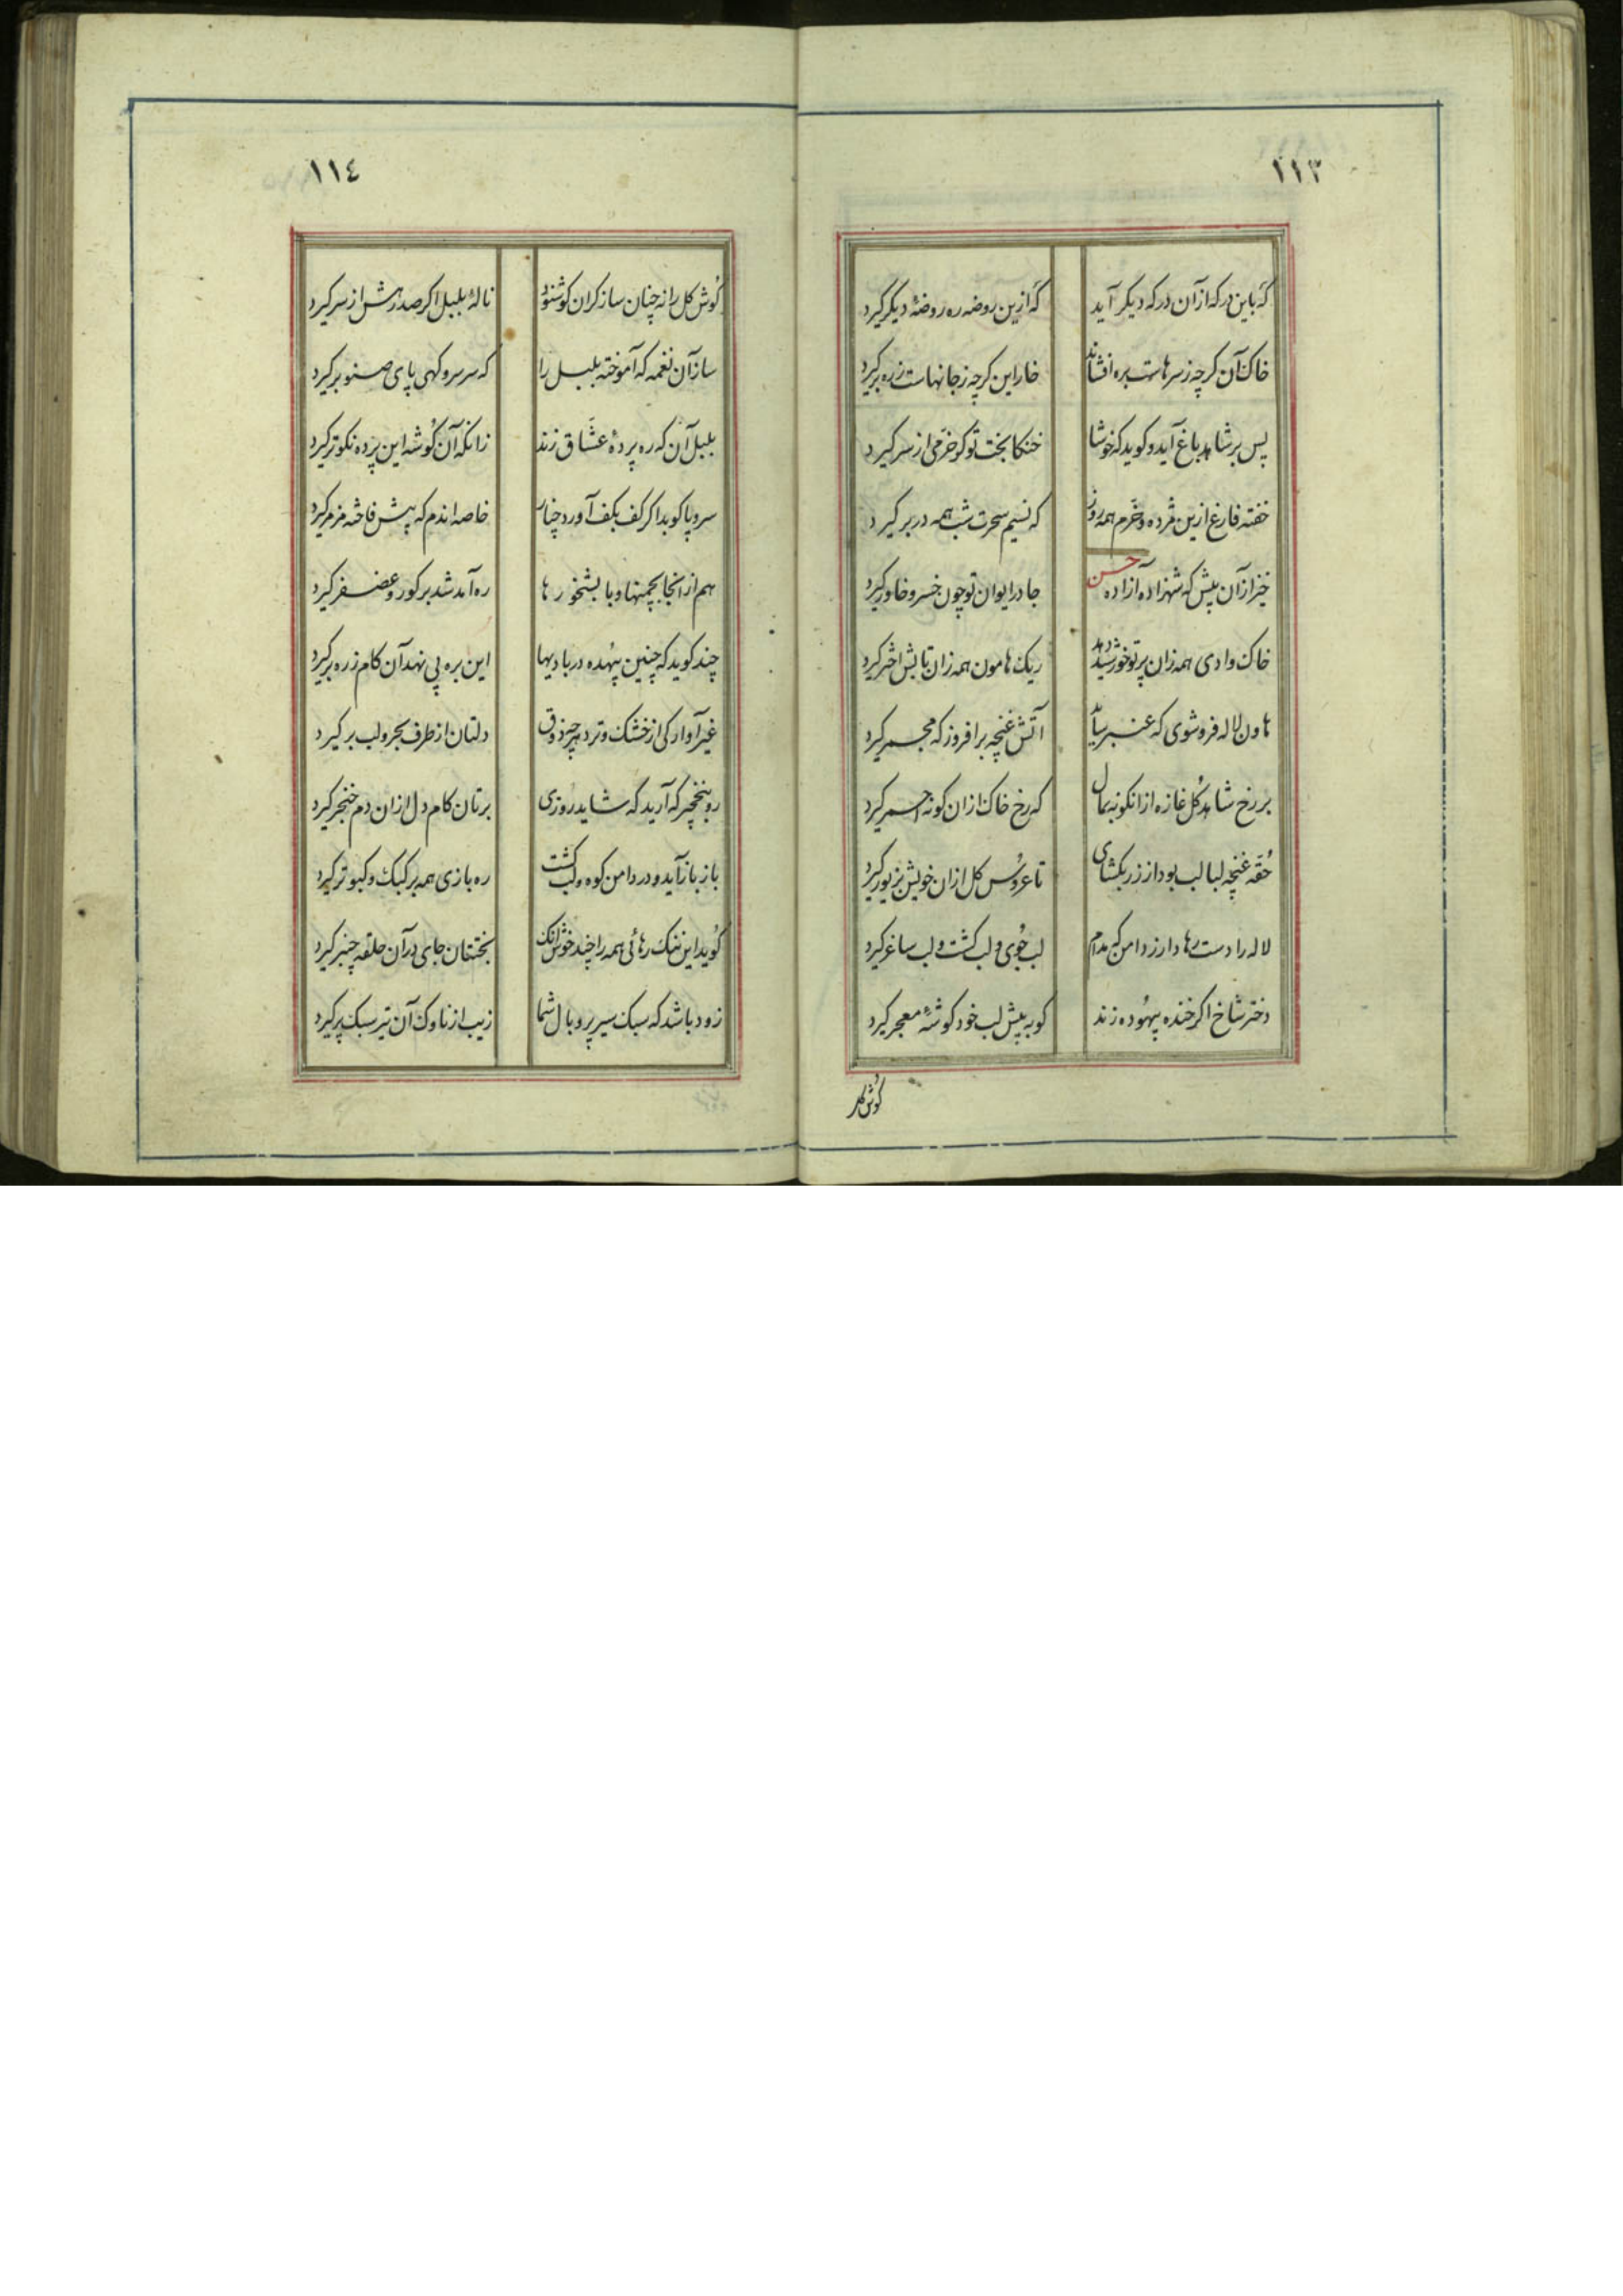 ١١٣
گه باین در که از آن در که دیگر آید
که ازین روضه ره روضهٔ دیگر گیرد
خاک آن کرچه ز سرهاست بره افشاند
خار این کرچه ز جانهاست ز ره برگیرد
پس بر شاهد باغ آید و کوید که خوشا
خنکا بخت تو کو خرّمی از سر گیرد
خفته فارغ ازین مژده و خرّم همه روز
که نسیم سحرت شب همه در بر گیرد
خیز از آن پیش که شهزاده آزاده حسن
جا در ایوان تو چون خسرو خاور گیرد
خاک وادی همه زان پرتو خورشید دهد
ریک هامون همه زان تابش اختر گیرد
هاون لاله فروشوی که عنبر ساید
آتش غنچه برافروز که مجمر گیرد
بر رخ شاهد کُل غازه از انکونه بمال
که رخ خاک ازان کونه احمر گیرد
حُقّه غنچه لبالب بود از زر بکشای
تا عروُس کل ازان خویش بزیور گیرد
لاله را دست رها دار ز دامن که مدام
لب جُوی و لب کشت و لب ساغر گیرد
دختر شاخ اکر خنده بیهُوده زند
کو به پیش لب خود کوشهٔ معجر گیرد
کوُش کل
١١٤
کوُش کل را نه چنان ساز کران کو شنود
نالهٔ بلبل اکر صد رهش از سر گیرد
ساز آن نغمه که آموخته بلبل را
که سر سرو کهی پای صنوبر گیرد
بلبل آن که ره پردهٔ عشّاق زند
زانکه آن کوُشه این پرده نکوتر گیرد
سرو پا کوبد اکر کف بکف آورد چنار
خاصه اندم که پیش فاخته مزمر گیرد
هم از انجا بچمنها و بابشخورها
ره آمد شد بر کور و غضنفر گیرد
چند کوید که چنین بیهُده در بادیها
این بره پی نهد آن کام ز ره برگیرد
غیر آوارکی از خشک و تر دهر چه ذوق
دلتان از طرف بحر و لب بر گیرد
رو بنخچیر که آرید که شاید روزی
برتان کام دل ازان دم خنجر گیرد
باز باز آید و در دامن کوه و لب کشت
ره بازی همه بر کبک و کبوتر گیرد
کوُید این ننک رهائی همه را چند خوش انک
بختتان جای در آن حلقه چنبر گیرد
زود باشد که سبک سیر پر و بال شما
زیب از ناوک آن تیر سبک پر گیرد